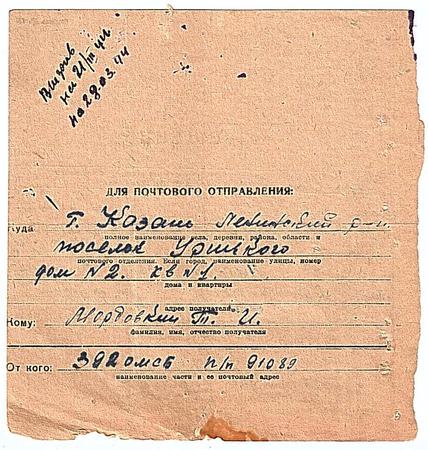 на 21/III 44
на 28.03.44
ДЛЯ ПОЧТОВОГО ОТПРАВЛЕНИЯ:
Куда г. Казань Ленинский р-н.
полное наименование села, деревни, района, области и
поселок Урицкого
почтового отделения. Если город, наименование улицы, номер
дом N2. кв N1.
дома и квартиры
адрес получателя
Кому: Мордовкин Т. И.
фамилия, имя, отчество получателя
От кого: 392 омсб п/п 91089
наименование части и ее почтовый адрес